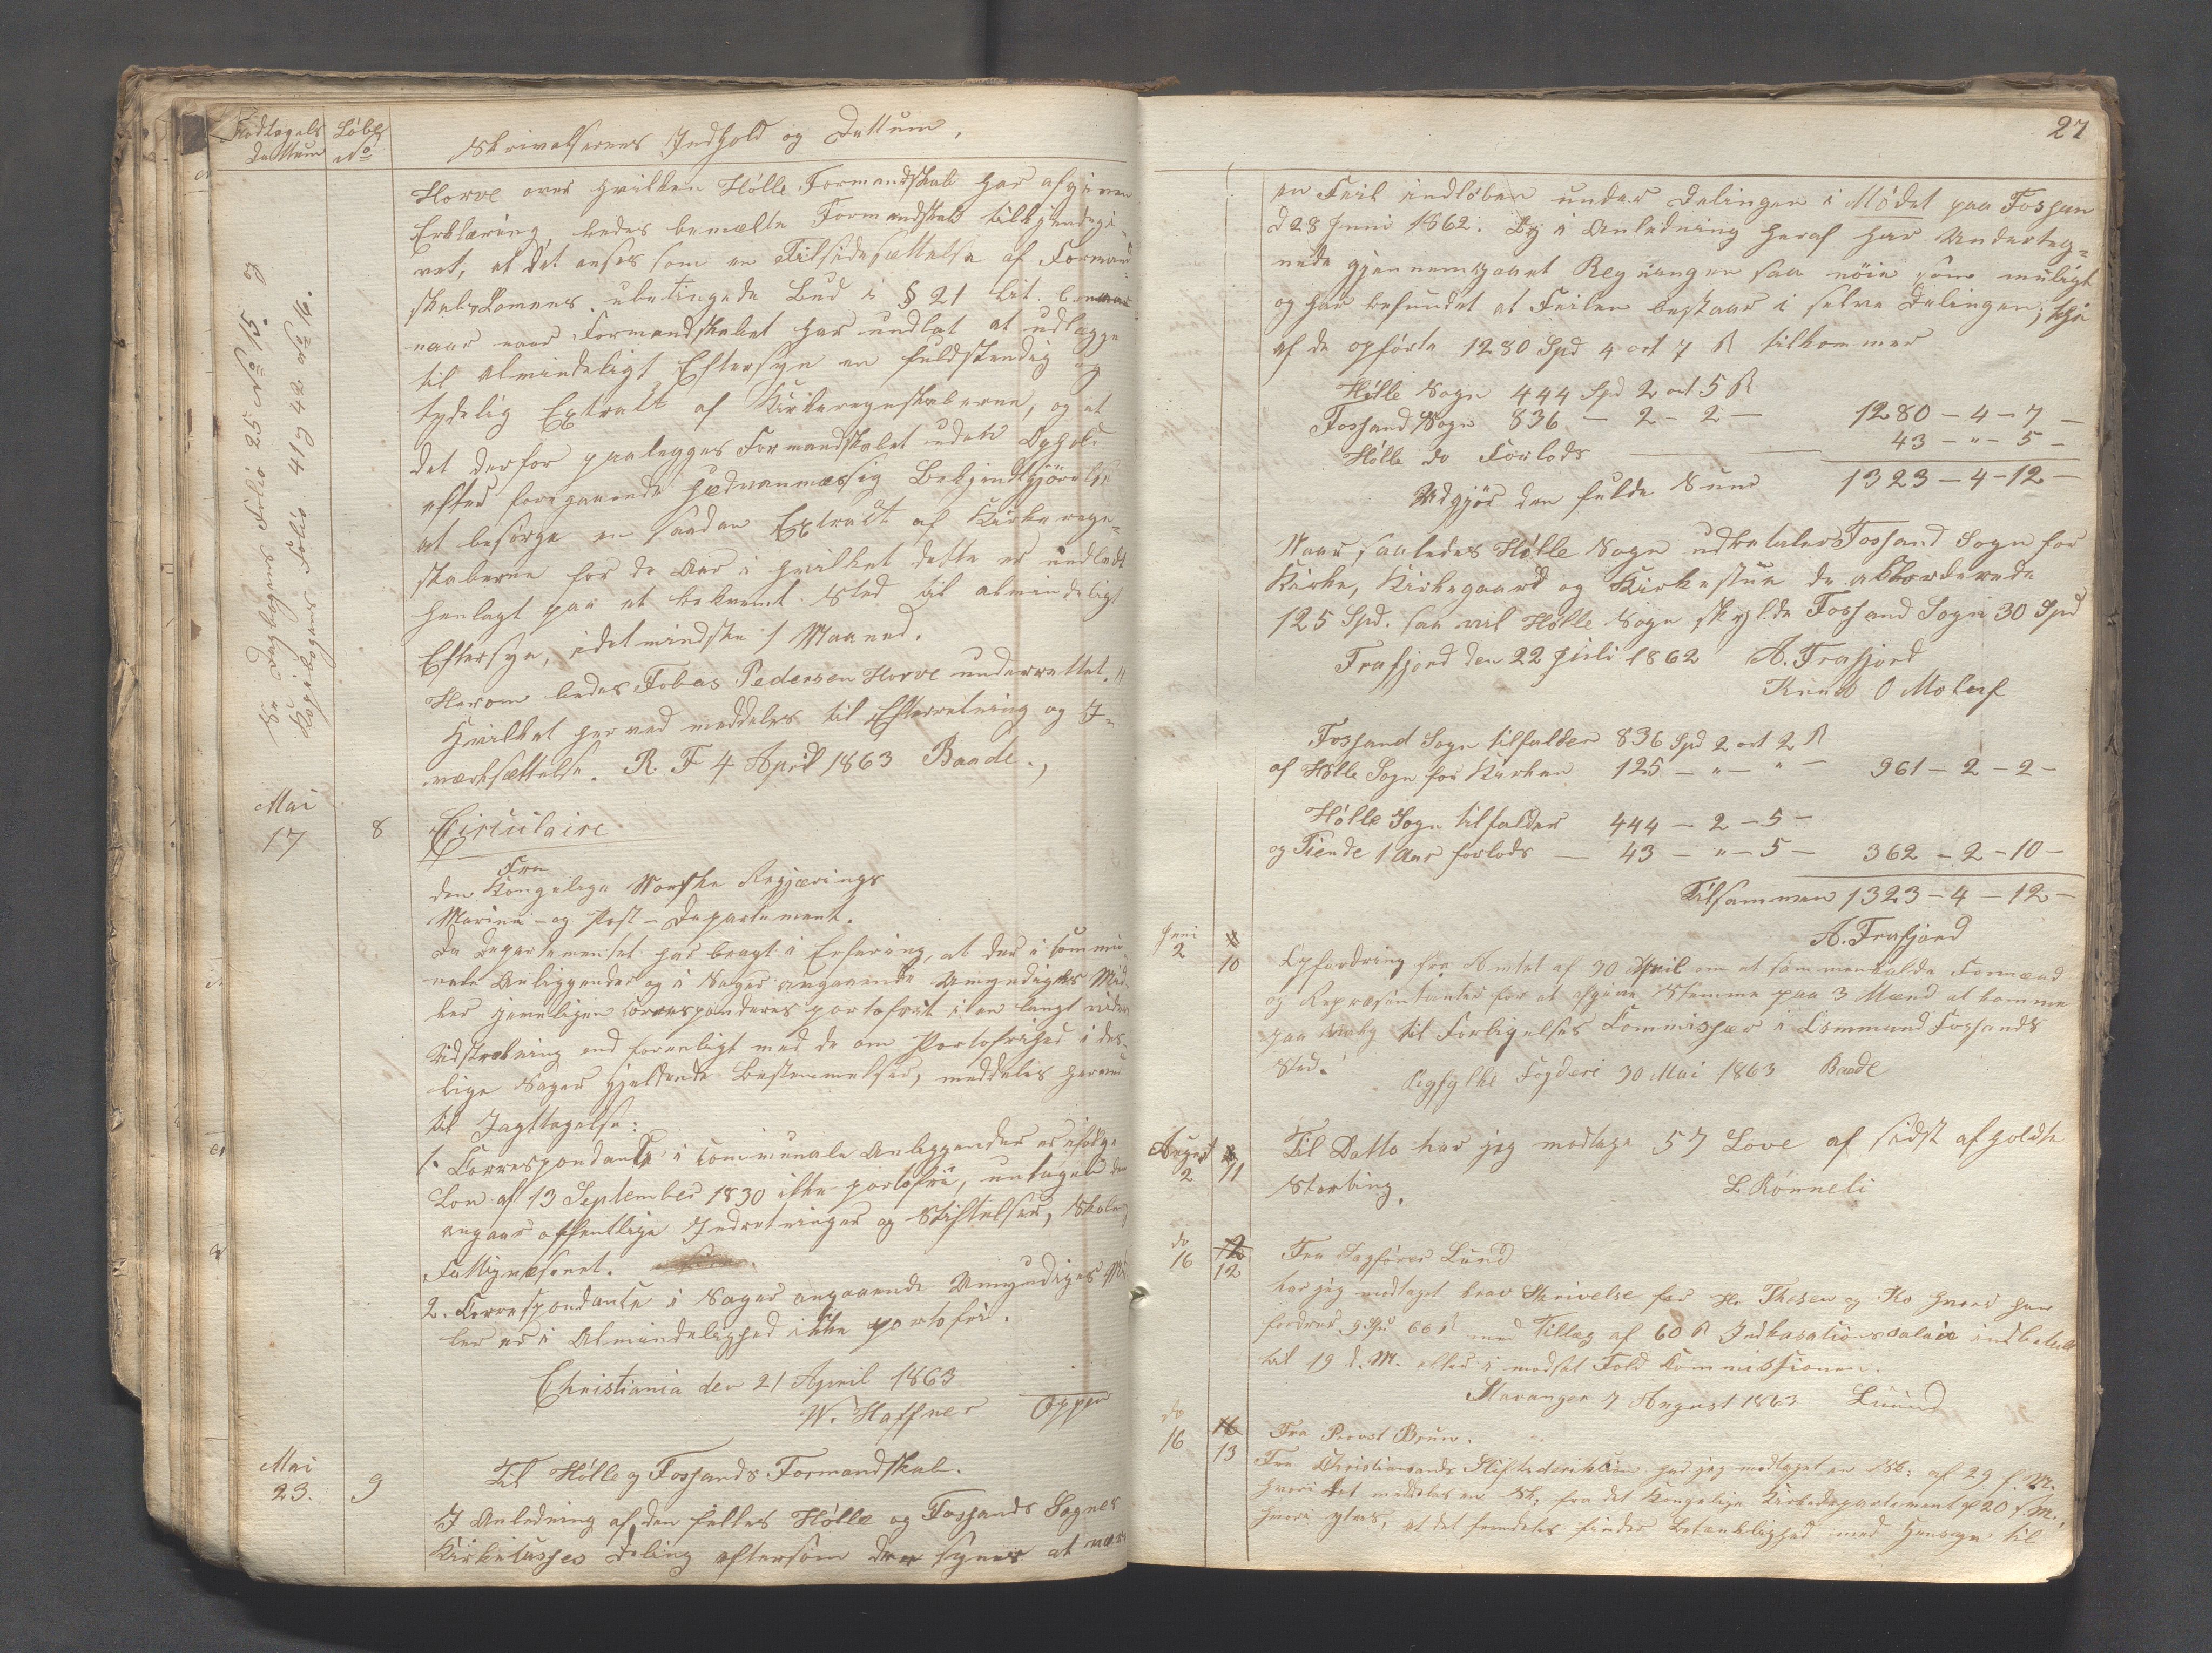 Modtagels Löbe Skrivelsernes Indhold og Dattum.
Dattum No
Horve over hvilken Hölle Formandskab har afgiven
Erklæring bedes bemeldte Formandskab tilkjendegi-
vet, at det anses som en Tilsidesættelse af Forman-
skabslovens ubetingede Bud i § 21 Lit.
naar Formandskabet har undladt at udlægge
til almindeligt Eftersyn en fuldstendig og
tydelig Extrakt af Kirkeregnskaberne, og at
det derfor paalegges Formandskabet uden Ophold
efter foregaaende sædvanmæssig Bekjendtgjörelse
at besörge en saadan Extract af Kirkeregn-
skaberne for de Aar i hvilket dette er undladt
henlagt paa et bekvemt Sted til almindeligt
Eftersyn, idetmindste 1 Maaned.
Herom bedes Tobias Pedersen Horve underrettet."
Hvilket herved meddeles til Efterretning og I-
værksættelse. R. F 4 April 1863 Baade.,
Se Dagbogens Folio 25 No 5 &
Kopibogens Folio 41 & 42 No 16.
Mai
17 8 Circulaire
Fra
den Kongelige Norske Regjærings
Marine- og Post-Departement.
Da Departementet har bragt i Erfaring, at der i Commu-
nale Anliggender og i Sager angaaende Umyndiges Mid-
ler jevnligen corresponderes portofrit i en langt videre
Udstrækning end foreneligt med de om Portofrihed i des-
lige Sager gjældende Bestemmelser, meddeles herved
til Iagttagelse:
1. Correspondance i Communale Anliggender er ifölge
Lov af 13 September 1830 ikke portofri, undtagen den
angaar offentlige Indretninger og Stiftelser, Skole og
Fattigvæsenet.
2. Correspondance i Sager angaaende Umyndiges Mid
ler er i Almindelighed ikke portofri.
Christiania den 21 April 1863
W. Haffner Oppen
Mai
23. 9 Til Hölle og Fossands Formandskab.
I Anledning af den felles Hölle og Fossands Sognes
Kirkecasses Deling eftersom der synes at være
27
en Feil indlöben under Delingen i Mödet paa Fossan
d 28 Juni 1862. Og i Anledning heraf har Underteg-
nede gjennemgaaet Regningen saa nöie som muligt
og har befundet at Feilen bestaar i selve Delingen; thi
af de opförte 1280 Spd 4 ort 7 ß tilkommer
Hölle Sogn 444 Spd 2 ort 5 ß
Fossand Sogn 836 - 2 - 2 - 1280 - 4 - 7 -
Hölle do Forlods - 43 - " - 5 -
Udgjör den fulde Sum 1323 - 4 - 12 -
Naar saaledes Hölle Sogn udbetaler Fossand Sogn for
Kirke, Kirkegaard og Kirkestue de akkorderede
125 Spd. saa vil Hölle Sogn skylde Fossand Sogn 30 Spd
Frafjord den 22 Juli 1862 A. Frafjord
Knud O Molaf
Fossand Sogn tilfalder 836 Spd 2 ort 2 ß
af Hölle Sogn for Kirken 125 - " - " - 961 - 2 - 2 -
Hölle Sogn tilfalder 444 - 2 - 5 -
og Tiende 1 Aar forlods - 43 - " - 5 - 362 - 2 - 10 -
Tilsammen 1323 - 4 - 12 -
A. Frafjord
Juni
2 10 Opfordring fra Amtet af 30 April om at sammenkalde Formænd
og Repræsentanter for at afgive Stemme paa 3 Mænd at komme
paa Valg til Forligelses Commissær i Osmund Fossands
Sted.
Ryfylke Fogderi 30 Mai 1863 Baade
August
2 11 Til Datto har jeg modtage 57 Love af sidst afholdte
Storting. L Rönneli
do
16 12 Fra Sagförer Lund
har jeg modtaget krav Skrivelse for Hr Thesen og Ko hvori han
fordrer 9 Spd 66 ß med Tillæg af 60 ß Indkasationssalair indbetalt
til 19 d. M. eller i modsat Fald Kommissionen.
Stavanger 7 August 1863 Lund
do
16 13 Fra Provst Brun.
Fra Christiansands Stiftsderiktion har jeg modtaget en Sk: af 29 f. M.
hvori det meddeles en Sk: fra det Kongelige Kirkedepartement af 20 f. M.,
hvori ytres, at det fremdeles finder Betænklighed med Hensyn til